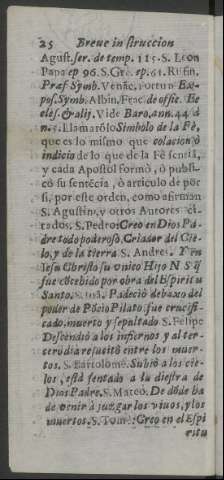 25 Breue instruccion
Agust. ser. de temp. 115. S. Leon
Papa ep 96. S. Gre. ep. 61. Rufin.
Præf Symb. Venãc. Fortun Ex-
pos. Symb. Albin, Feac. de offic. Ec
eles. & alij. Vide Baro. ann. 44 d
n. Llamarõlo Simbolo de la Fè,
que es lo mismo que colacion ò
indicio de lo que de la Fè sentiã,
y cada Apostol formò, ò publi-
cò su sentẽcia, ò articulo de por
si, por este orden, como afirman
S. Agustin, y otros Autores ci-
tados. S. Pedro: Creo en Dios Pa-
dre todo poderoso, Criador del Cie-
lo, y de la tierra. S. Andres. Y en
Iesu Christo su vnico Hijo N S q̃
fue cõcebido por obra del Espiritu
Santo. S. Iuã. Padeciò debaxo del
poder de Põcio Pilato: fue crucifi-
cado, muerto y sepultado. S. Felipe
Descendiò a los infiernos y al ter-
cero dia resucitò entre los muer-
tos. S. Bartolomè. Subiò a los cie-
los, està sentado a la diestra de
Dios Padre. S. Mateo. De dõde ha
de venir à juzgar los viuos, y los
muertos. S. Tomè: Creo en el Espi
ritu